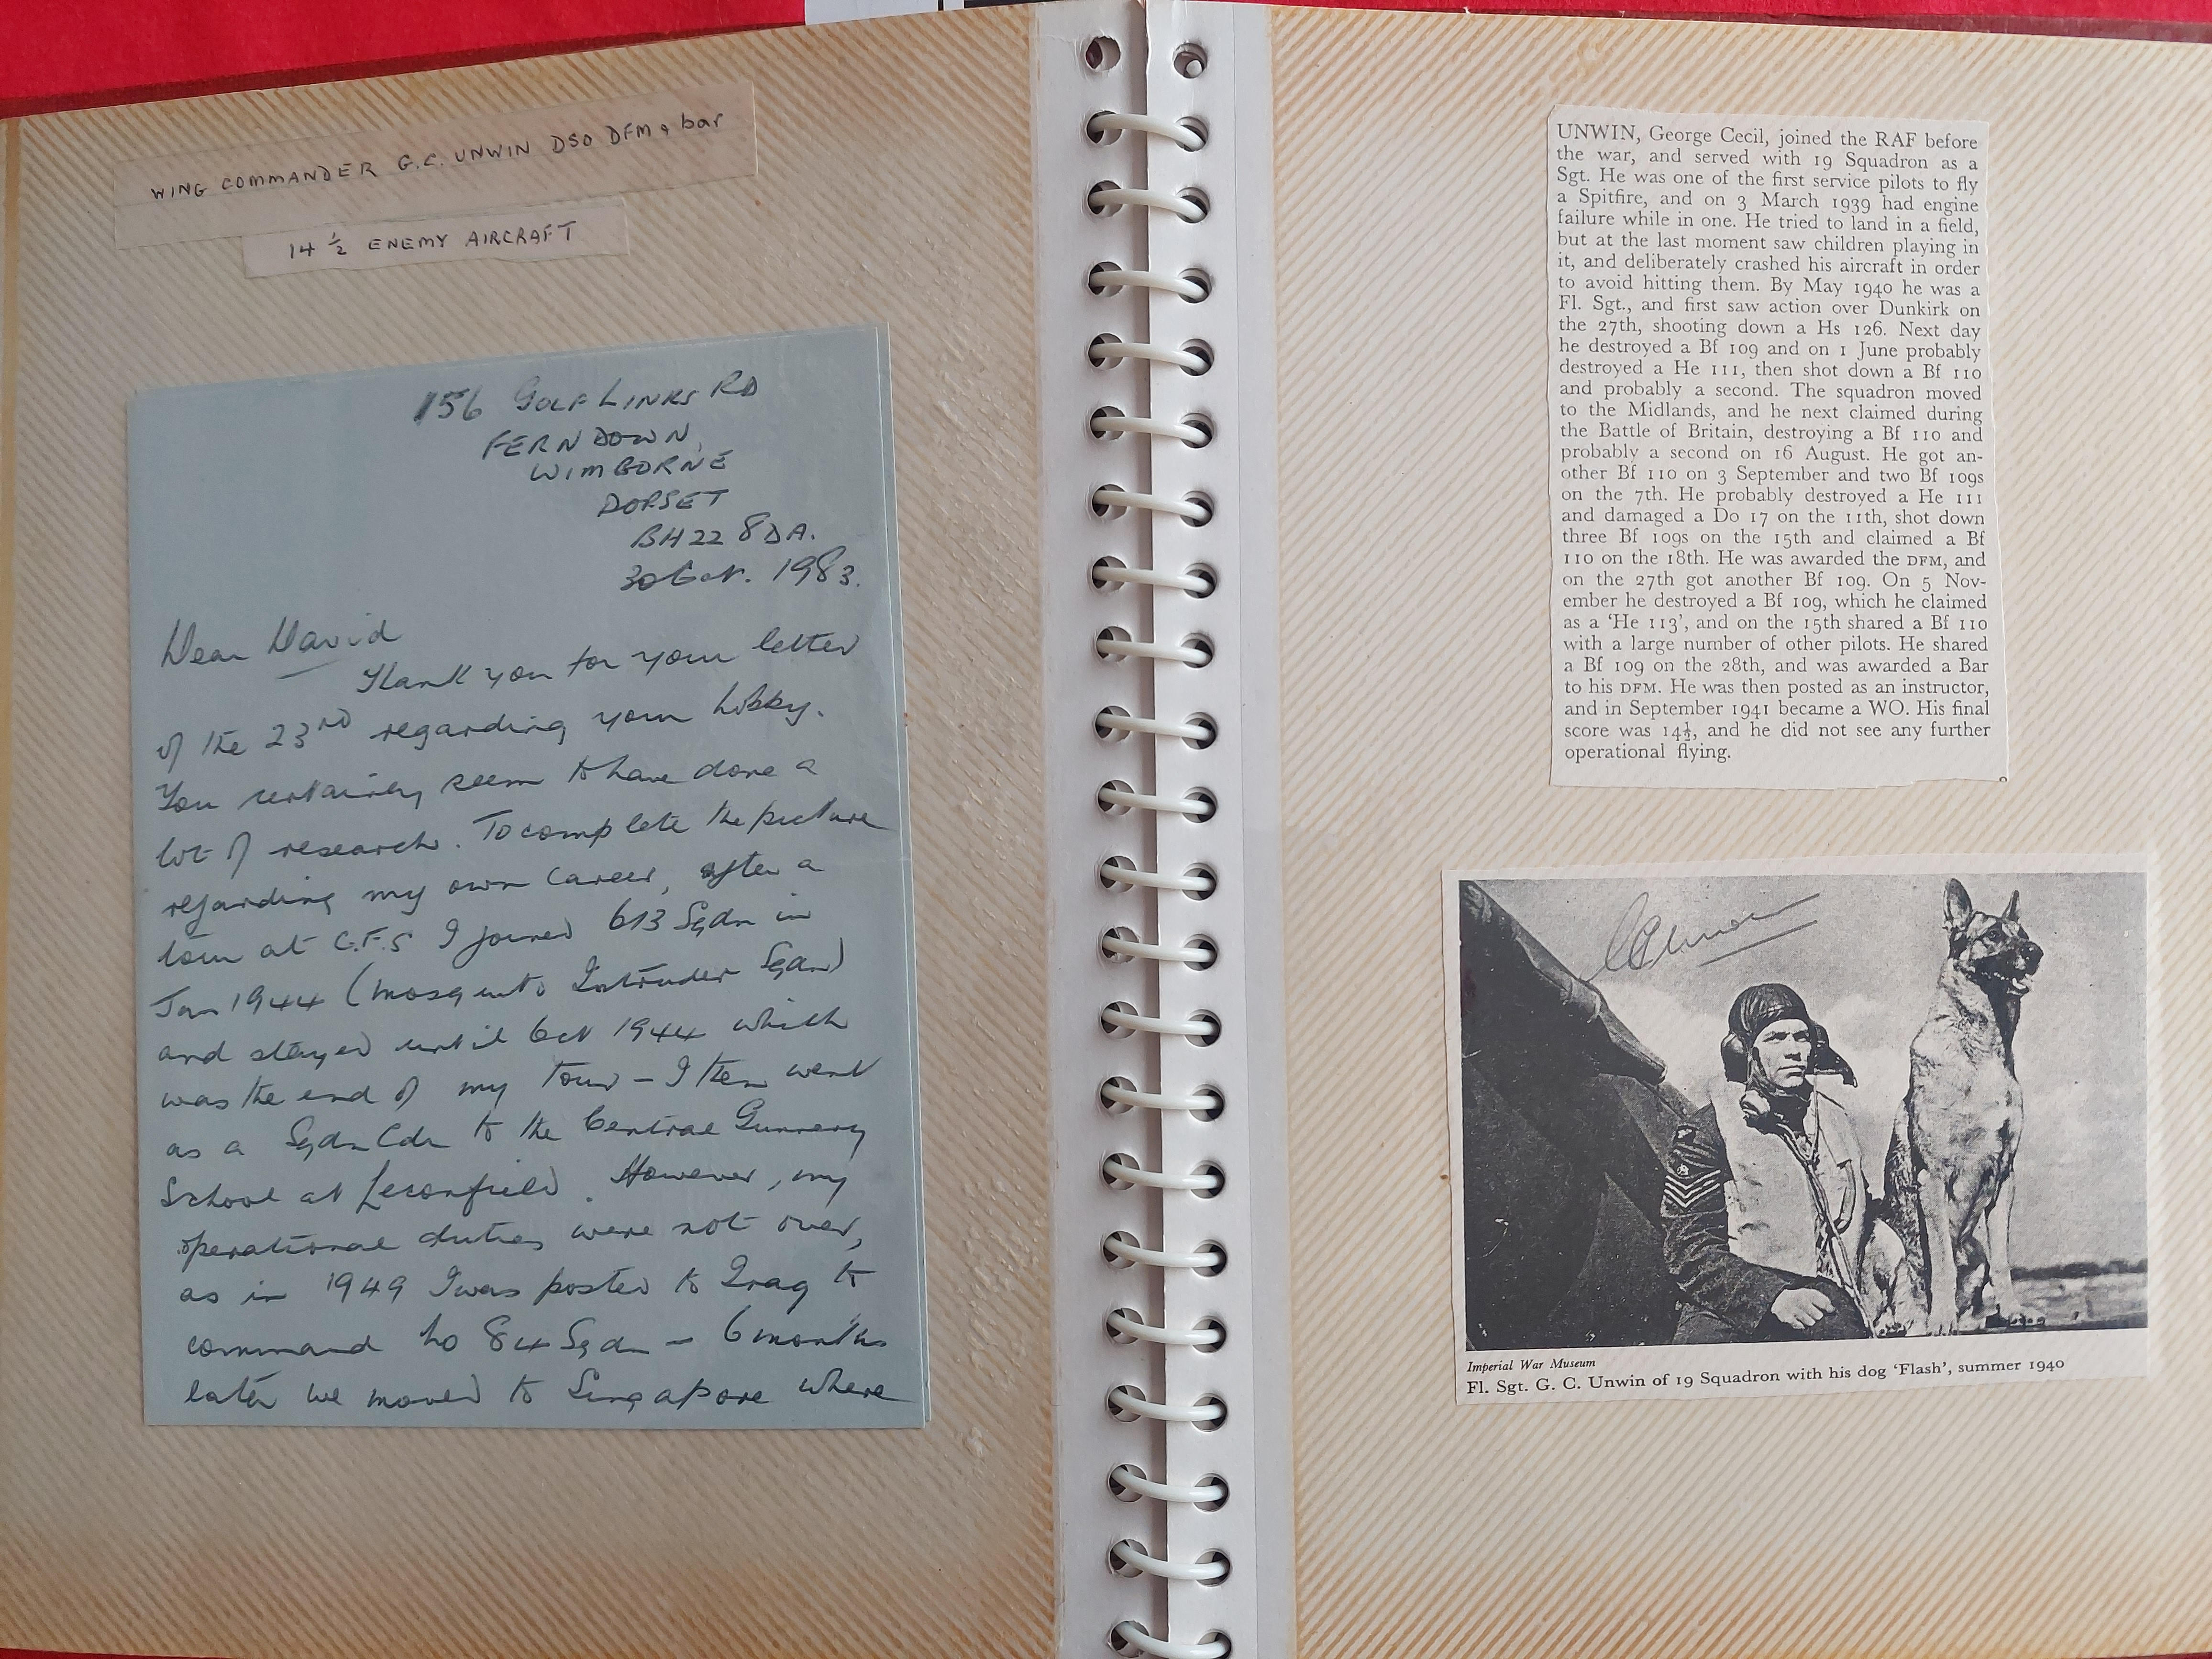 WING COMMANDER G.C. UNWIN DSO DFM & bar
14 ½ ENEMY AIRCRAFT
156 GOLF LINKS RD
FERNDOWN,
WIMBORNE
DORSET
BH22 8DA.
30 Oct. 1983.
Dear David
Thank you for your letter
of the 23RD regarding your hobby.
You certainly seem to have done a
lot of research. To complete the picture
regarding my own career, after a
tour at C.F.S I joined 613 Sqdn in
Jan 1944 (Mosquito Intruder Sqdn)
and stayed until Oct 1944 which
was the end of my tour - I then went
as a Sqdn Cdr to the Central Gunnery
School at Leconfield. However, my
operational duties were not over,
as in 1949 I was posted to Iraq to
command No 84 Sqdn - 6 months
later we moved to Singapore where
UNWIN, George Cecil, joined the RAF before
the war, and served with 19 Squadron as a
Sgt. He was one of the first service pilots to fly
a Spitfire, and on 3 March 1939 had engine
failure while in one. He tried to land in a field,
but at the last moment saw children playing in
it, and deliberately crashed his aircraft in order
to avoid hitting them. By May 1940 he was a
Fl. Sgt., and first saw action over Dunkirk on
the 27th, shooting down a Hs 126. Next day
he destroyed a Bf 109 and on 1 June probably
destroyed a He 111, then shot down a Bf 110
and probably a second. The squadron moved
to the Midlands, and he next claimed during
the Battle of Britain, destroying a Bf 110 and
probably a second on 16 August. He got an-
other Bf 110 on 3 September and two Bf 109s
on the 7th. He probably destroyed a He 111
and damaged a Do 17 on the 11th, shot down
three Bf 109s on the 15th and claimed a Bf
110 on the 18th. He was awarded the DFM, and
on the 27th got another Bf 109. On 5 Nov-
ember he destroyed a Bf 109, which he claimed
as a 'He 113', and on the 15th shared a Bf 110
with a large number of other pilots. He shared
a Bf 109 on the 28th, and was awarded a Bar
to his DFM. He was then posted as an instructor,
and in September 1941 became a WO. His final
score was 14½, and he did not see any further
operational flying.
GCUnwin
Imperial War Museum
Fl. Sgt. G. C. Unwin of 19 Squadron with his dog 'Flash', summer 1940